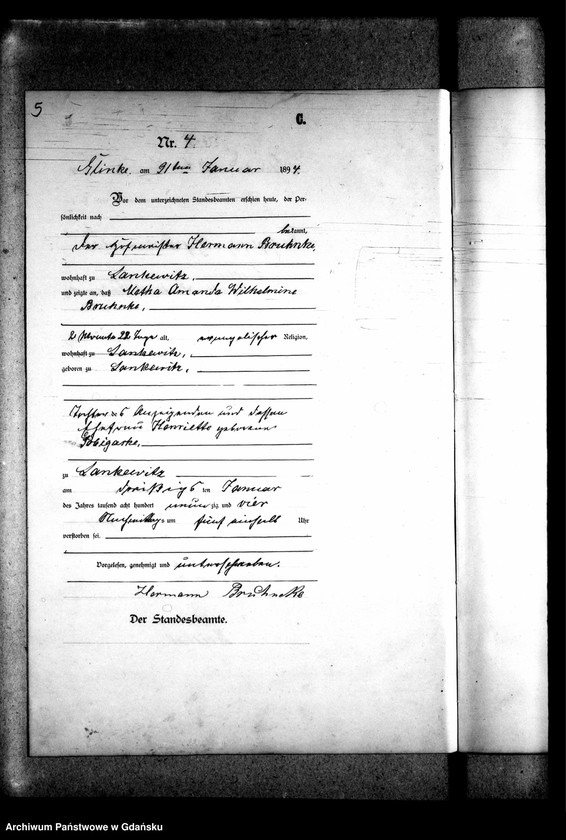 5
C.
Nr. 4.
Glinke, am 31ten Januar 1894.
Vor dem unterzeichneten Standesbeamten erschien heute, der Per-
sönlichkeit nach
bekannt,
der Hofmeister Hermann Bruhnke,
wohnhaft zu Lankewitz,
und zeigte an, daß Metha Amanda Wilhelmine
Bruhnke,
2 Monate 22 Tage alt, evangelischer Religion,
wohnhaft zu Lankewitz,
geboren zu Lankewitz,
Tochter des Anzeigenden und dessen
Ehefrau Henriette geborene
zu Lankewitz
am dreißigsten Januar
des Jahres tausend acht hundert neunzig und vier
Nachmittags um fünf einhalb Uhr
verstorben sei.
Vorgelesen, genehmigt und unterschrieben.
Hermann Bruhncke
Der Standesbeamte.
Archiwum Państwowe w Gdańsku